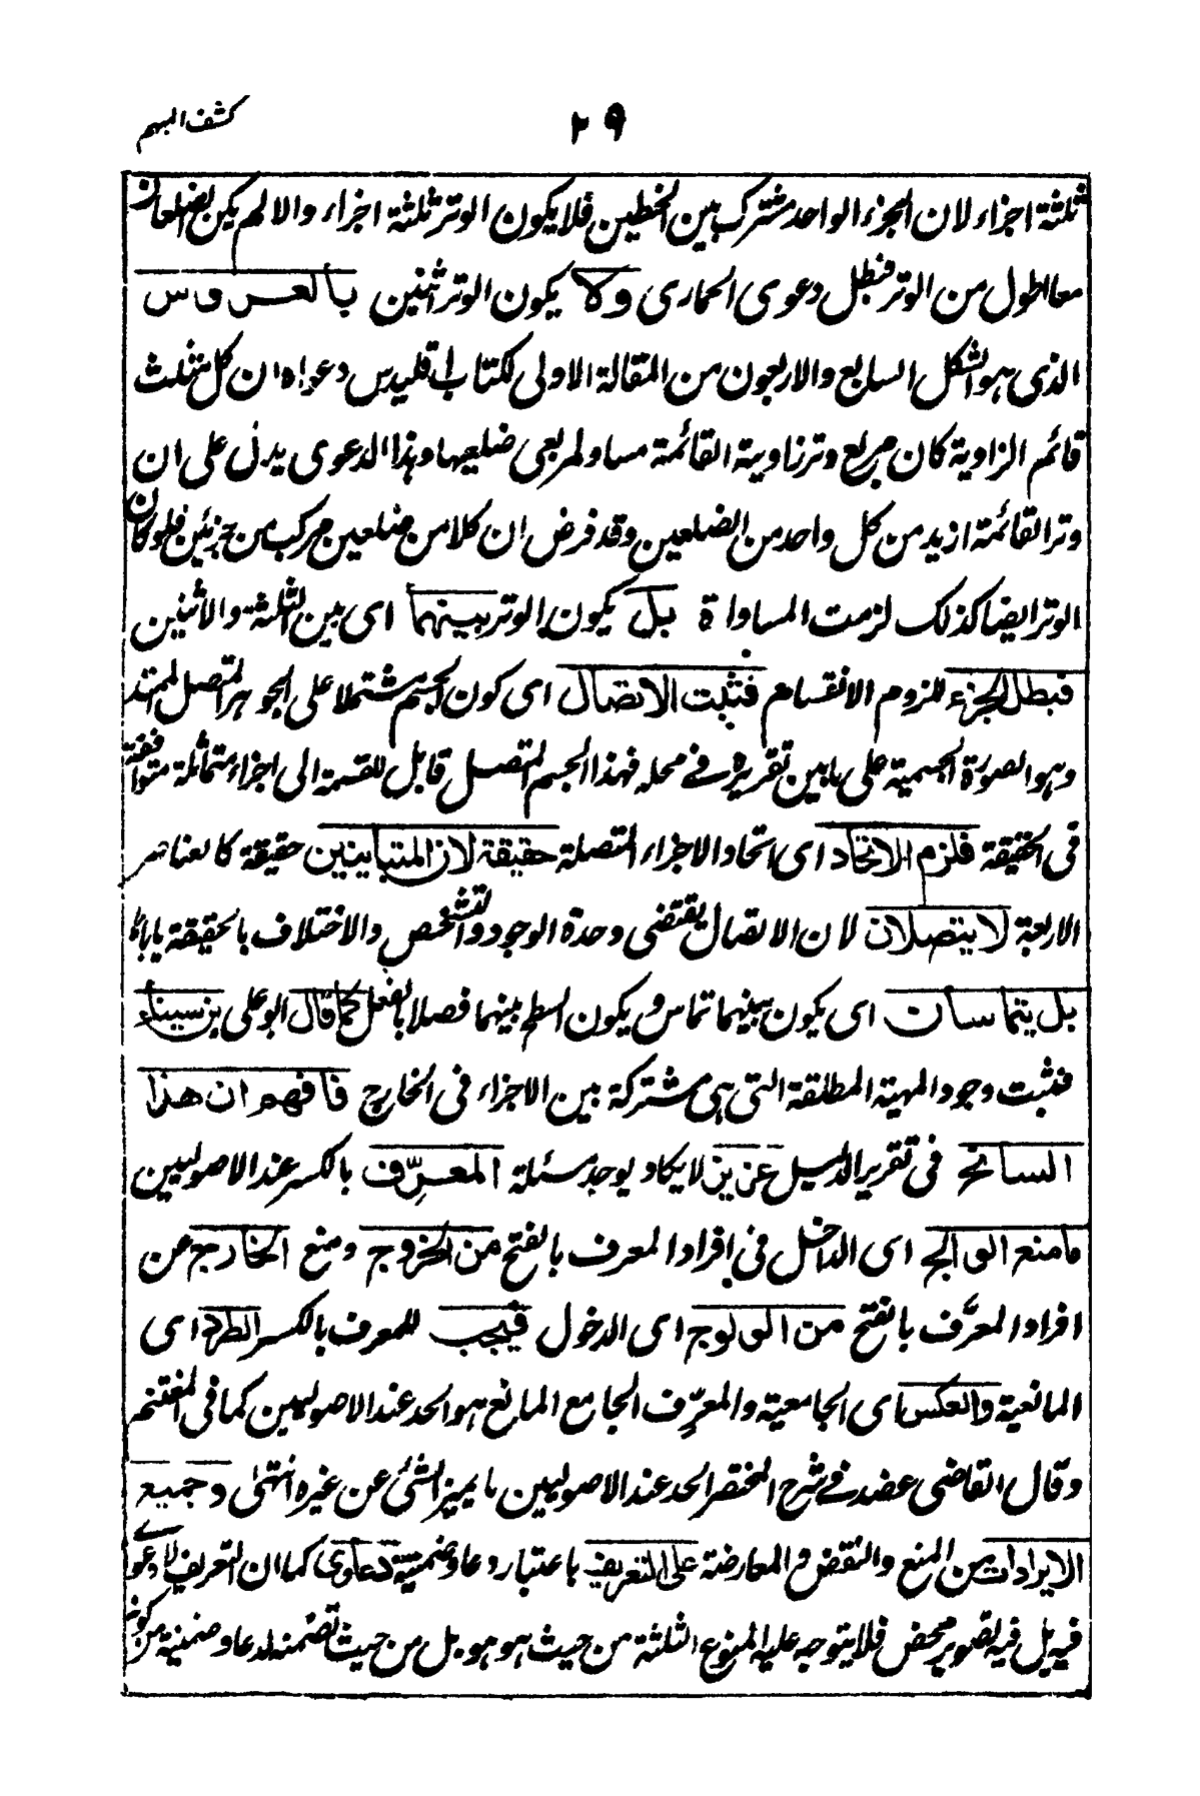 كشف المبهم
٢٩
ثلثة اجزاء لان الجزء الواحد مشترك بين الخطين فلا يكون الوتر ثلثة اجزاء والا لم يكن الضلعان
معا اطول من الوتر فبطل دعوى الحمارى ولا يكون الوتر اثنين بالعروس
الذى هو الشكل السابع والاربعون من المقالة الاولى لكتاب اقليدس دعواه ان كل مثلث
قائم الزاوية كان مربع وتر زاويته القائمة مساو لمربعى ضلعيها وهذا الدعوى يدل على ان
وتر القائمة ازيد من كل واحد من الضلعين وقد فرض ان كلا من ضلعين مركب من جزئين فلو كان
الوتر ايضا كذلك لزمت المساواة بل يكون الوتر بينهما اى بين الثلثة والاثنين
فبطل الجزء للزوم الانقسام فثبت الاتصال اى كون الجسم مشتملا على الجوهر المتصل الممتد
وهو الصورة الجسمية على ما بين تقريره فى محله فهذا الجسم المتصل قابل للقسمة الى اجزاء متماثلة متوافقة
فى الحقيقة فلزم الاتحاد اى اتحاد الاجزاء المتصلة حقيقة لان المتباينين حقيقة كالعناصر
الاربعة لا يتصلان لان الاتصال يقتضى وحدة الوجود والتشخص والاختلاف بالحقيقة ياباه
بل يتماسان اى يكون بينهما تماس ويكون السطح بينهما فصلا بالفعل كما قال ابو على بن سيناء
فثبت وجود المهية المطلقة التى هى مشتركة بين الاجزاء فى الخارج فافهم ان هذا
السانح فى تقرير الدليل عزيز لا يكاد يوجد مسئلة المعرِّف بالكسر عند الاصوليين
ما منع الوالج اى الداخل فى افراد المعرف بالفتح من الخروج ومنع الخارج عن
افراد المعرَّف بالفتح من الولوج اى الدخول فيجب للمعرف بالكسر الطرد اى
المانعية والعكس اى الجامعية والمعرِّف الجامع المانع هو الحد عند الاصوليين كما فى المغتنم
وقال القاضى عضد فى شرح المختصر الحد عند الاصوليين ما يميز الشئ عن غيره انتهى وجميع
الايرادات من المنع والنقض والمعارضة على التعريف باعتبار دعاو ضمنية دعاوى كما ان التعريف لا دعوى
فيه بل فيه تصوير محض فلا يتوجه عليه المنوع الثلثة من حيث هو هو بل من حيث تضمنه لدعاو ضمنية من كونه